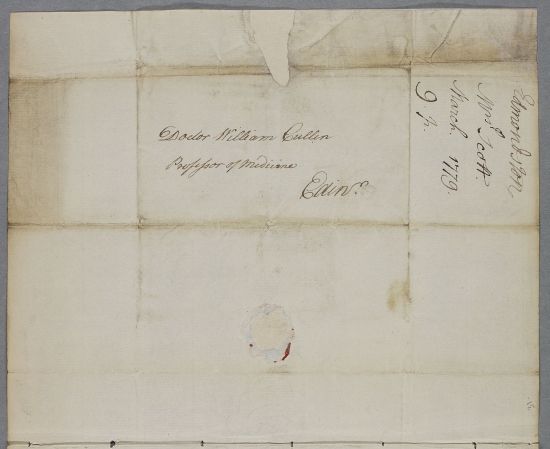 Doctor William Cullen
Professor of Medicine
Edinr.
Edmondston
Mrs. Scott.
March 1779.